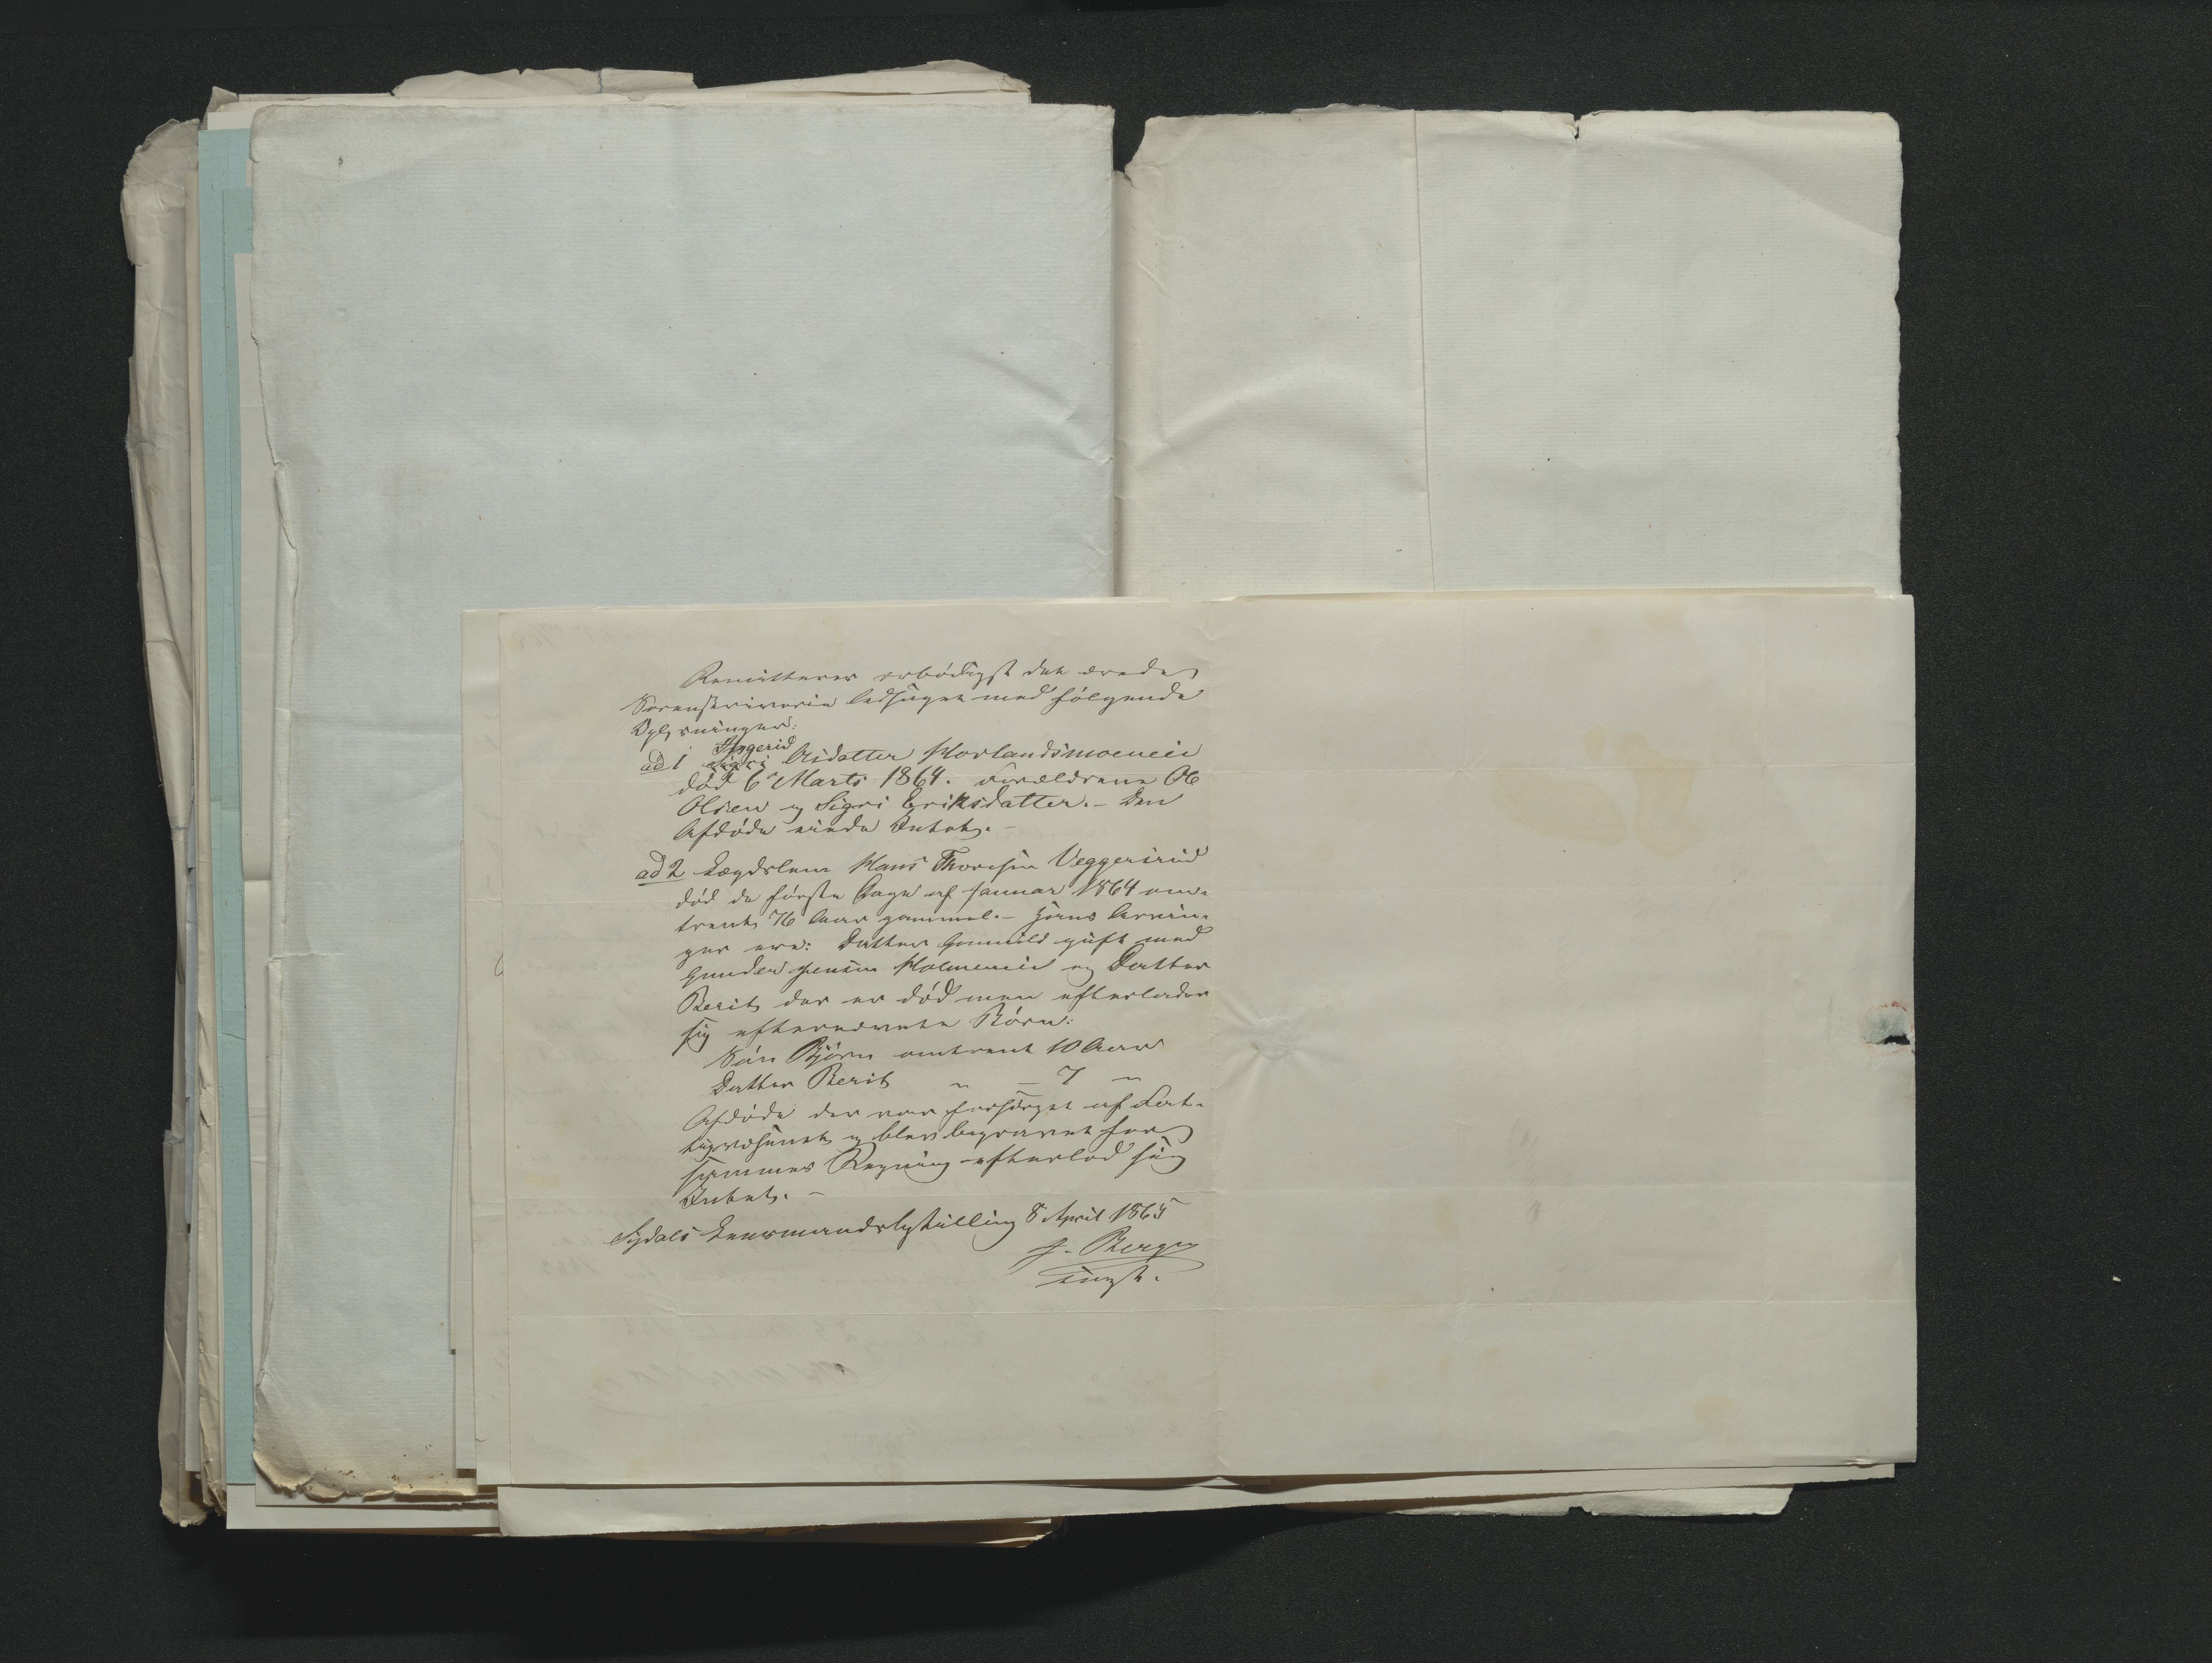 Remitteres ærbödigst det ærede
Sorenskriverie ledsaget med fölgende
Oplysninger:
ad 1 Ingerid Sigri Olsdatter Horlandsmoeneie
död 6 Marts 1864. Forældrene Ole
Olsen og Sigri Eriksdatter. – Den
Afdöde eiede Intet. –
ad 2 Lægdslem Hans Thoresen Veggersrud
död de förste Dage af Januar 1864 om-
trent 76 Aar gammel. – Hans Arvin-
ger ere: Datter Gunnild gift med
Gunder Jensen Holmeneie og Datter
Berit der er död men efterlader
sig efternævnte Börn:
Sön Björn omtrent 10 Aar
Datter Berit " – 7 "
Afdöde der var forsörget af Fat-
tigvæsenet og blev begravet for
sammes Regning efterlod sig
Intet. –
Sigdals Lensmandsbestilling 8 April 1865
J. Berg